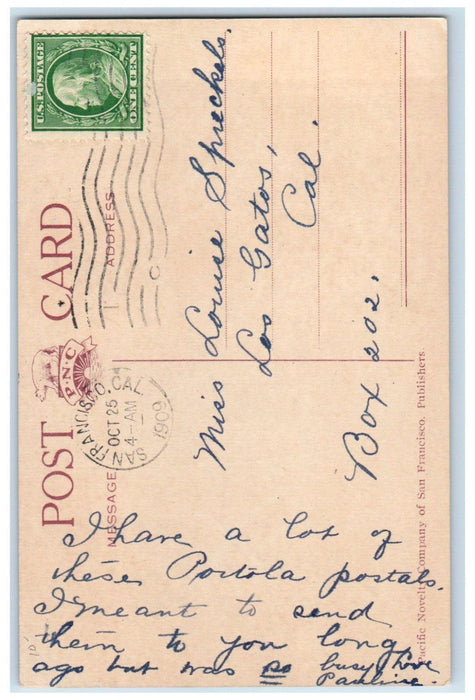 U.S. POSTAGE
ONE CENT
POST CARD
P·N·C
MESSAGE
ADDRESS
SAN FRANCISCO, CAL.
OCT 25
4-AM
1909
Miss Louise Spreckels.
Los Gatos,
Cal.
Box 202.
I have a lot of
these Portola postals.
I meant to send
them to you long
ago but was so busy Love
Pauline.
Pacific Novelty Company of San Francisco, Publishers.
10-